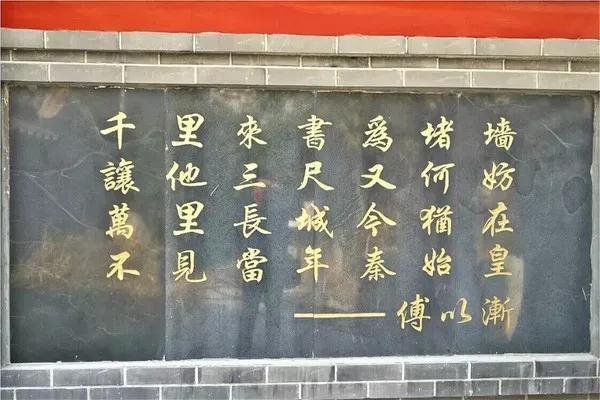 千里來書爲堵墻
讓他三尺又何妨
萬里長城今猶在
不見當年秦始皇
——傅以漸